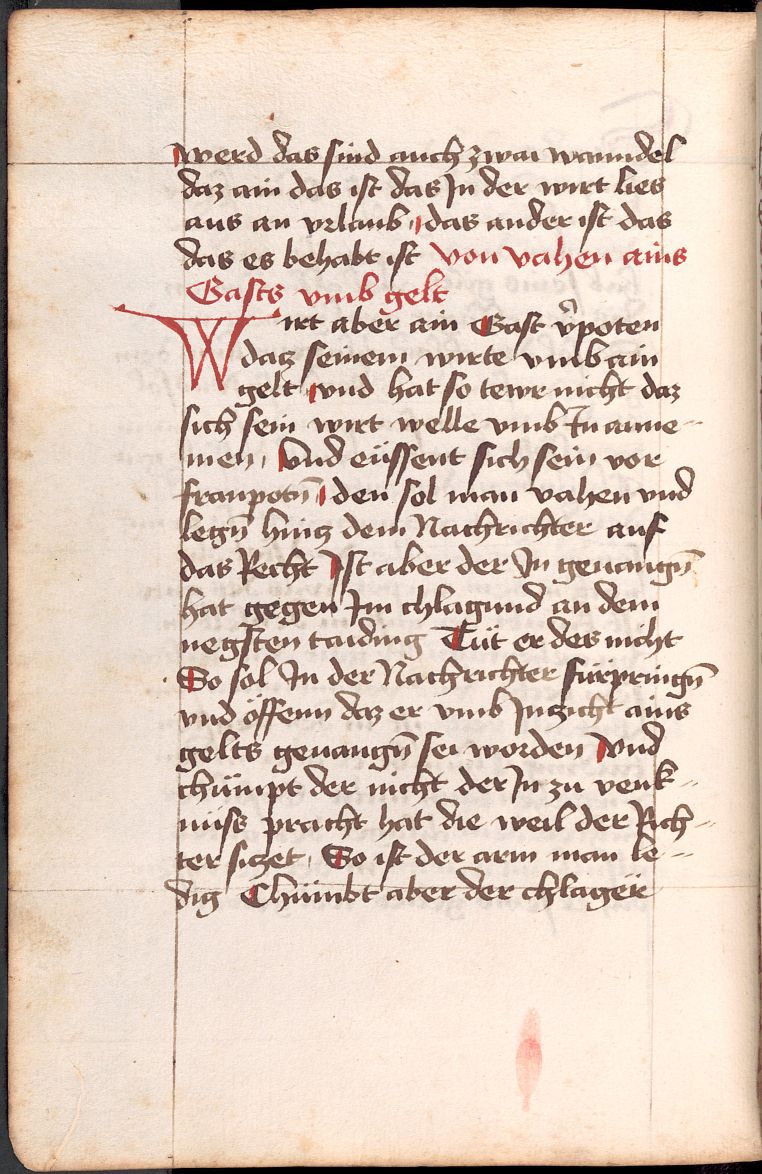 werd das sind auch zwai wanndel
daz ain das ist das In der wirt lies
aus an vrlaub, das ander ist das
das es behabt ist von vahen ains
Gasts vmb gelt
Wirt aber ain Gast v̉poten
datz seinem wirte vmb ain
gelt vnd hat so tewr nicht daz
sich sein wirt welle vmb In anne=
men, Vnd eüssent sich sein vor
franpotn̄ den sol man vahen vnd
legn̄ hintz dem Nachrichter auf
das Recht Ist aber der In geuangn̄
hat gegen Im chlagund an dem
negsten taiding Tüt er des nicht
So sol In der Nachrichter fürpringn̄
vnd öffenn daz er vmb Inzicht ains
gelts geuangn̄ sei worden Vnd
chümpt der nicht der In zu venk=
nüss pracht hat die weil der Rich=
ter sizet, So ist der arm man le=
dig Chümbt aber der chlager